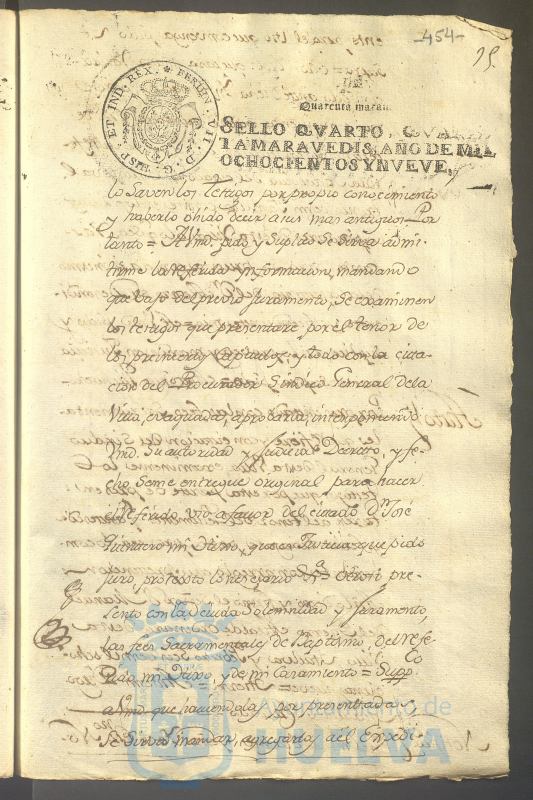 -454-
Quarenta marau
SELLO QVARTO, QVAREN
TA MARAVEDIS, AÑO DE MIL
OCHOCIENTOS Y NVEVE.
HISP. ET IND. REX. FERDIN. VII. D. G.
lo saven los testigos por propio conocimiento
y haberlo ohido decir a sus mas antiguos Por
tanto = A Vmd. pido y suplico se sirva admi-
tirme la referida Ynformacion, mandando
que vajo del previo Juramento, se examinen
los testigos que presentare por el tenor de
los preinsertos Capitulos; y todo con la cita-
cion del Procurador Sindico General de la
Villa, evaquada, aprobarla, interponiendo
Vmd. su autoridad y Judicial Decreto, y fe-
cho se me entregue original para hacer
el referido uso a favor del citado Dn. José
Quintero mi Primo, que es Justicia que pido
juro, protexto lo necesario &a. Otrosi pre-
sento con la devida Solemnidad y Juramento,
las fees Sacramentales de Baptismo, del refe-
rido mi y de mi Casamiento = Suppco.
a Vmd. que haviendola por presentada
se sirva mandar, agregarla al Expedi-
Ayuntamiento de
HUELVA